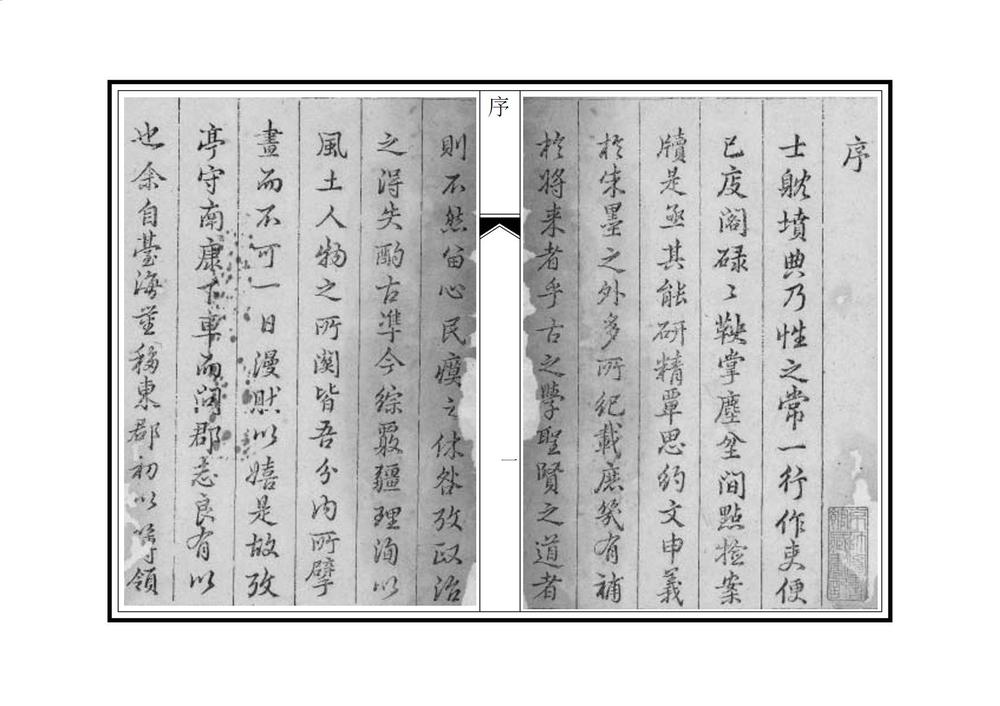 序
士躭墳典乃性之常一行作吏便
已庋閣碌〻鞅掌塵坌間點撿案
牘是亟其能研精覃思約文申義
於朱墨之外多所紀載庶幾有補
於將来者乎古之學聖賢之道者
序
一
則不然留心民瘼之休咎攷政治
之得失酌古準今綜覈疆理洵以
風土人物之所関皆吾分内所擘
畫而不可一日漫肰以嬉是故攷
亭守南康下車而问郡志良有以
也余自臺海量移東郡初以領